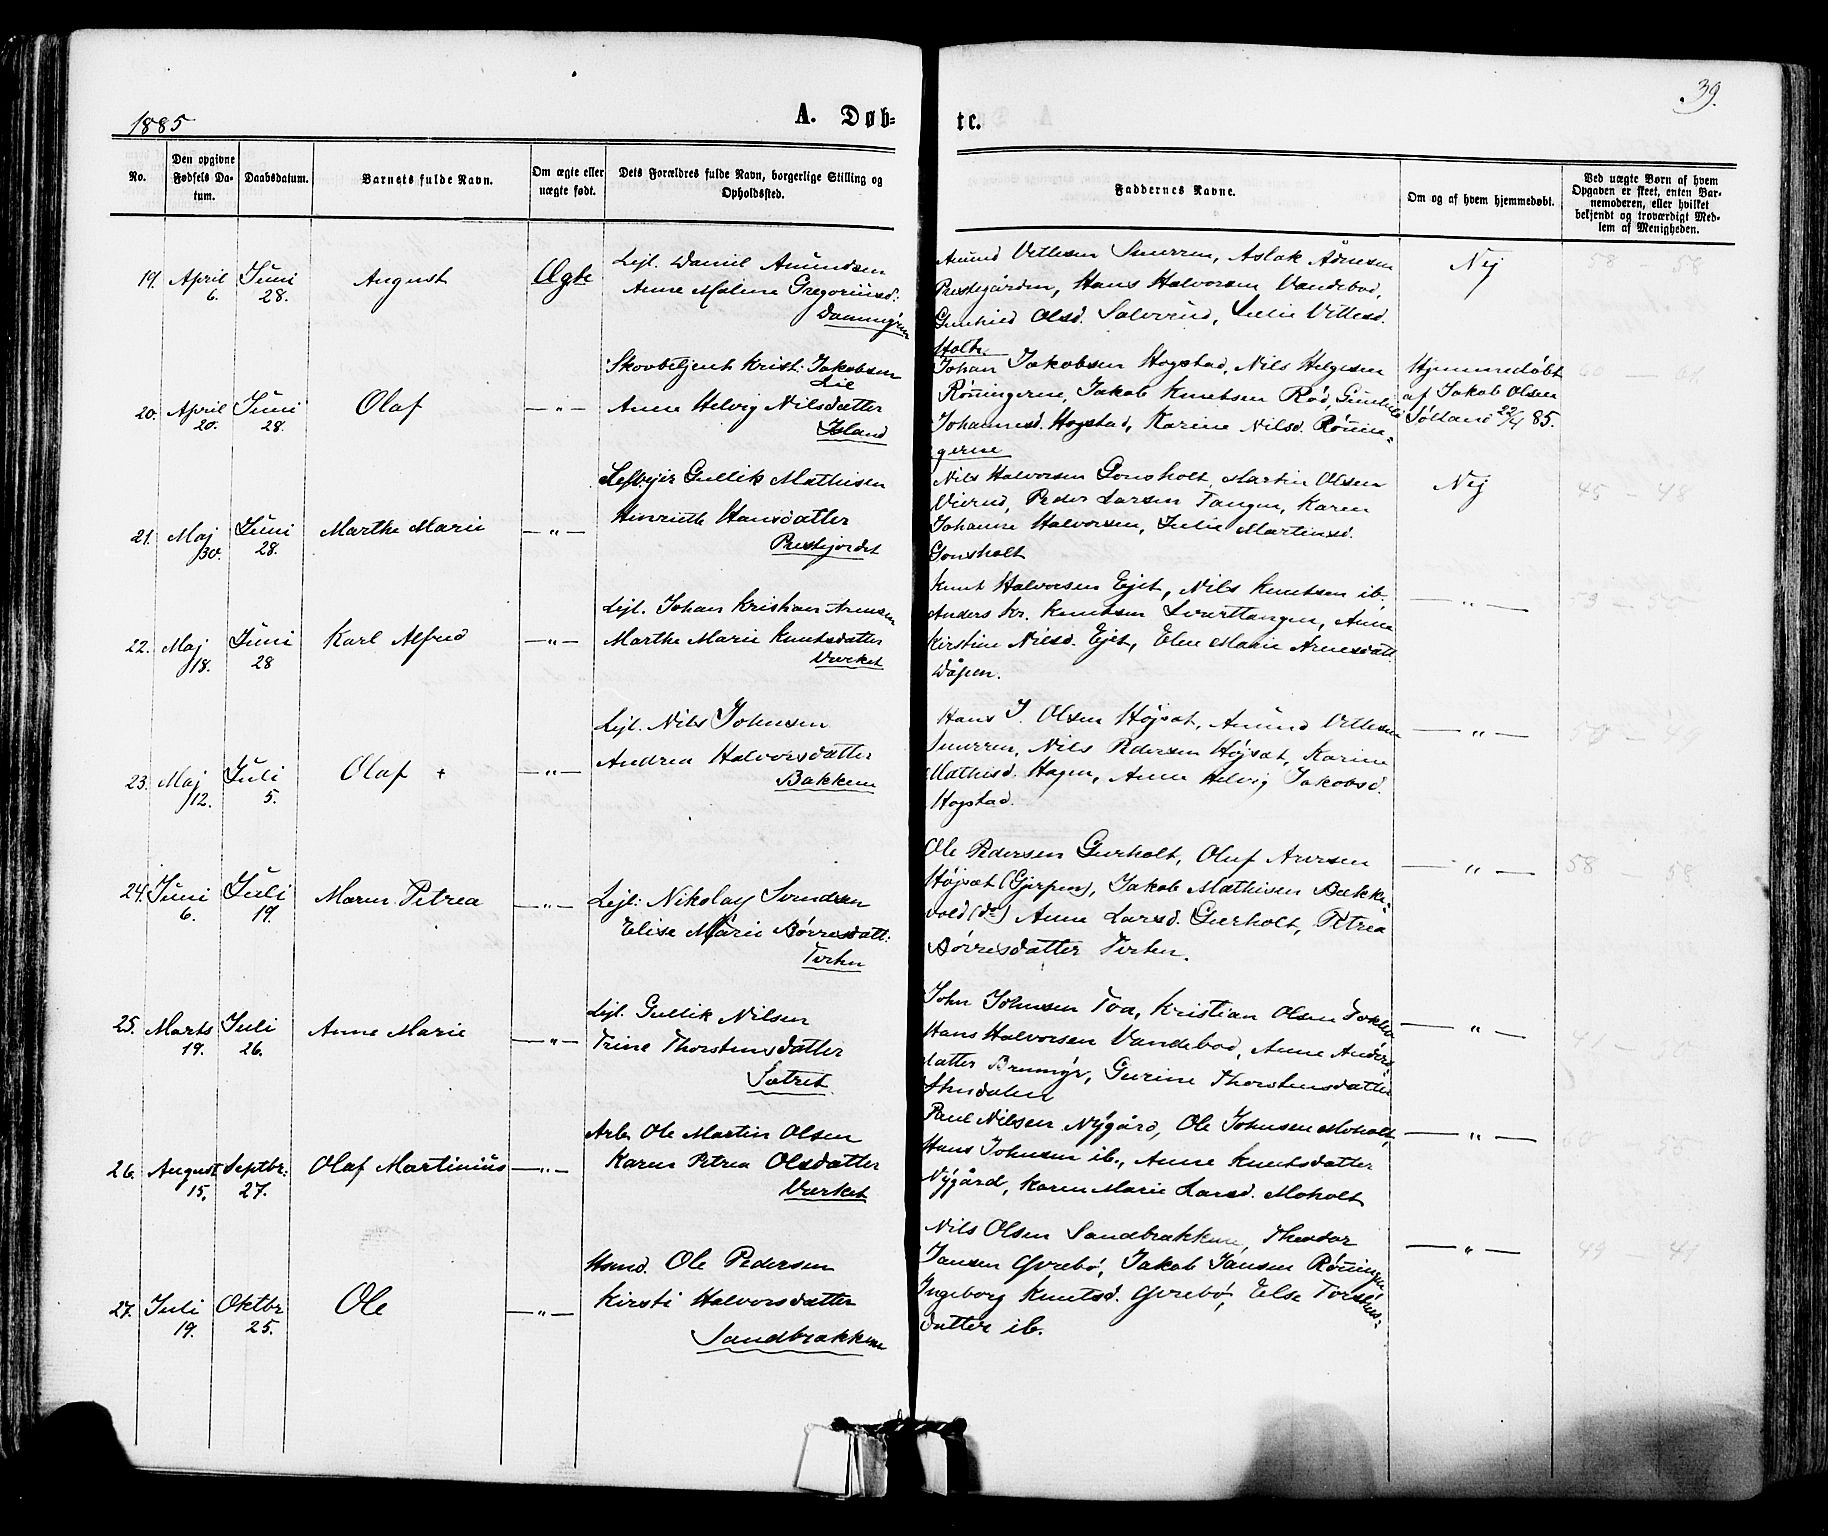 39.
1885
A. Døb-
te.
No.
Den opgivne Fødsels Da-tum.
Daabsdatum.
Barnets fulde Navn.
Om ægte eller uægte født.
Dets Forældres fulde Navn, borgerlige Stilling og Opholdssted.
Faddernes Navne.
Om og af hvem hjemmedøbt.
Ved uægte Børn af hvem Opgaven er skeet, enten Bar-nemoderen, eller hvilket bekjendt og troværdigt Med-lem af Menigheden.
19. April 6. Juni 28. August Ægte
Lejl. Daniel Amundsen
Anne Malene Gregoriusd.
Dammyren
Amund Vetlesen Smurren, Aslak Ådnesen
Prestegården, Hans Halvorsen Vandebod,
Gunhild Olsd. Solverud, Julie Vetlesd.
Holte.
Nej
58 58
20. April 20. Juni 28. Olaf — „ —
Skovbetjent Krist. Jakobsen
Lie
Anne Helvig Nilsdatter
Island
Johan Jakobsen Hogstad, Nils Helgesen
Rønningerne, Jakob Knutsen Rød, Gunhild
Johannesd. Hogstad, Karine Nilsd. Rønnin-
gerne
Hjemmedøbt
af Jakob Olsen
Jølland 22/4 85.
21. Maj 30. Juni 28. Marthe Marie — „ —
Selvejer Gullik Mathisen
Henriette Hansdatter
Prestejordet
Nils Halvorsen Gonsholt, Martin Olsen
Vierud, Peder Larsen Tangen, Karen
Johanne Halvorsen, Julie Martinsd.
Gonsholt
Nej
45 — 48
22. Maj 18. Juni 28 Karl Alfred — „ —
Lejl. Johan Kristian Arnesen
Marthe Marie Knutsdatter
Værket
Knut Halvorsen Ejet, Nils Knutsen ib.,
Anders Kr. Knutsen Svarttangen, Anne
Kirstine Nilsd. Ejet, Elen Marie Arnesdatt.
Wåpen.
— „ —
23. Maj 12. Juli 5. Olaf + — „ —
Lejl. Nils Johnsen
Andrea Halvorsdatter
Bakken
Hans J. Olsen Højsæt, Amund Vetlesen
Smurren, Nils Pedersen Højsæt, Karine
Mathisd. Hagen, Anne Helvig Jakobsd.
Hogstad.
— „ —
24. Juni 6. Juli 19. Maren Petrea — „ —
Lejl. Nikolay Svendsen
Elise Marie Børresdatt.
Tvehen
Ole Pedersen Gurholt, Oluf Iversen
Højsæt (Gjerpen), Jakob Mathisen Bække-
vold (do) Anne Larsd. Gurholt, Petrea
Børresdatter Tvehen.
— „ —
58 58
25. Marts 19. Juli 26. Anne Marie — „ —
Lejl. Gullik Nilsen
Trine Thorstensdatter
Sætret
John Johnsen Toa, Kristian Olsen
Hans Halvorsen Vandebod, Anne Anders
datter Brumyr, Gurine Thorstensdatter
Stendalen
— „ —
26. August 15. Septbr. 27. Olaf Martinius — „ —
Arb. Ole Martin Olsen
Karen Petrea Olsdatter
Værket
Paul Nilsen Nygård, Ole Johnsen Moholt,
Hans Johnsen ib., Anne Knutsdatter
Nygård, Karen Marie Larsd. Moholt
— „ —
27. Juli 19. Oktbr 25. Ole — „ —
Hsmd. Ole Pedersen
Kirsti Halvorsdatter
Sandbrækkene
Nils Olsen Sandbrækkene, Theodor
Jansen Øvrebø, Jakob Jansen Rønningen
Ingeborg Knutsd. Øvrebø, Else Torstens-
datter ib.
— „ —
49 41